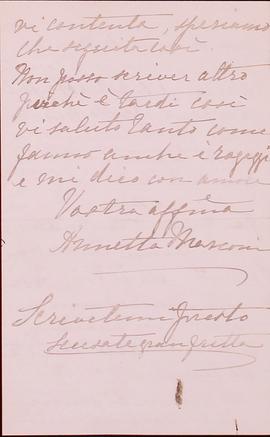 vi contenta, speriamo
che seguita così.
Non posso scriver altro
perchè è tardi così
vi saluto tanto come
fanno anche i ragazzi
e mi dico con amore
Vostra affma
Annetta Marconi
Scrivetemi presto
Scusate gran fretta